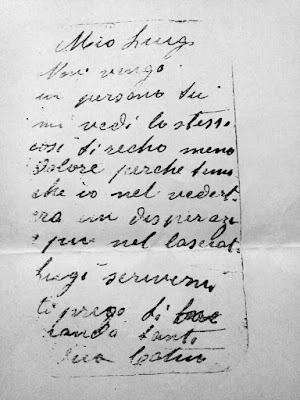 Mio Luigi
Non vengo
in persona tu
mi vedi lo stesso
così ti recho meno
dolore perche
che io nel veder
era un disperazi
e piu nel lasciat
Luigi scrivermi
ti prego di
tanti
tua